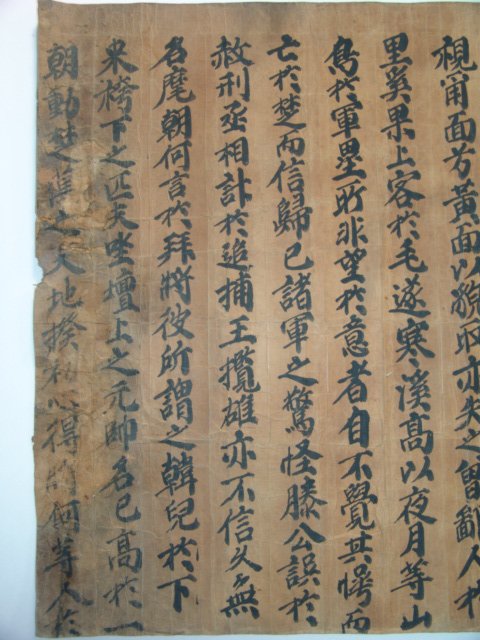 視甯面方黃面以貌取亦失之曾鄙人於
里異果上客於毛遂寒溪高以夜月等山
烏於軍星所非望於意者自不覺其愕而
亡於楚而信歸已諸軍之驚怪滕公誤於
赦刑丞相計於追捕王攬雄亦不信久無
名麾朝何言於拜將彼所謂之韓兒於下
來袴下之匹夫坐壇上之元帥名已高於一
朝動楚之天地 心得 何等人於